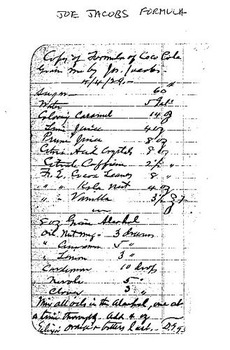 JOE JACOBS FORMULA
Copy of Formula of Coca Cola
Given me by Jos. Jacobs.
Sugar 60
Water 5 Gal.
Coloring Caramel 14 oz
Lime Juice 4 oz
Prune Juice 8 oz
Citric Acid Crystals 8 oz
Citrate Caffein 2½ "
F. E. Cocoa Leaves 8 "
" " Kola Nut 4 oz
" " Vanilla
8 oz Grain Alcohol
Oil Nutmeg 3 drams
" Cinnamon 5 "
" Lemon 3 "
Coriander 10 drops
Neroli 5 "
Cloves 3 "
Mix all oils in the Alcohol, one at
a time Add 4 oz
Elixir orange & bitters last.